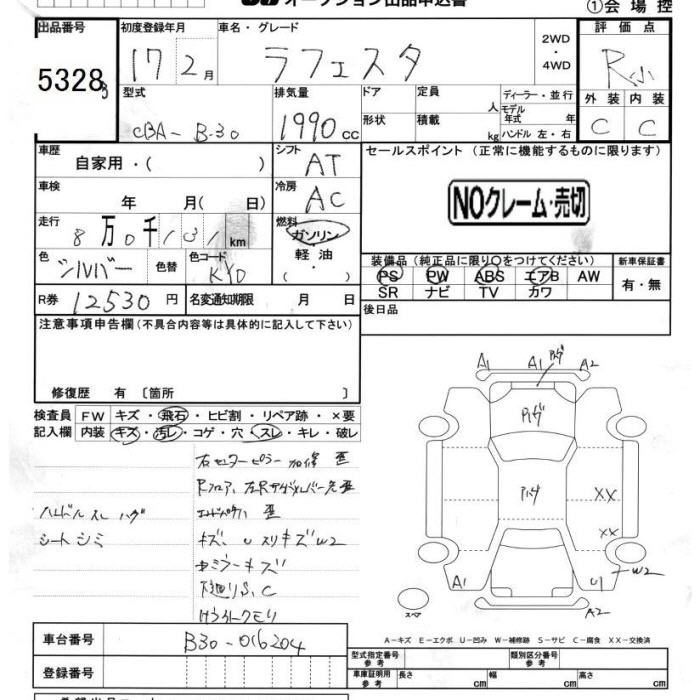 オークション出品申込書
①会場控
出品番号 初度登録年月 車名・グレード 評価点
5328 17 2月 ラフェスタ 2WD・4WD R小
型式 排気量 ドア 定員 ディーラー・並行 外装 内装
CBA-B30 1990cc 形状 積載 人 kg モデル年式 年 ハンドル 左・右 C C
車歴 シフト セールスポイント (正常に機能するものに限ります)
自家用・( ) AT
車検 冷房 NOクレーム・売切
年 月( 日) AC
走行 燃料
8万0千131km ガソリン
色 色替 色コード 軽油 装備品 (純正品に限り○をつけてください) 新車保証書
シルバー KY0 ・( ) PS PW ABS エアB AW 有・無
SR ナビ TV カワ
R券 12530円 名変通知期限 月 日 後日品
注意事項申告欄 (不具合内容等は具体的に記入して下さい)
修復歴 有 〔箇所 〕
検査員 FW キズ・飛石・ヒビ割・リペア跡・×要
記入欄 内装 キズ・汚レ・コゲ・穴・スレ・キレ・破レ
右センターピラー 加修 歪
ハンドル スレ ハゲ
シート シミ
キズ、U スリキズ W2
下廻りS、C
A1 A1 A2
XX
XX
W2
A1 U1
A2
スペア
A-キズ E-エクボ U-凹み W-補修跡 S-サビ C-腐食 XX-交換済
車台番号 B30-016204 型式指定番号 参考 類別区分番号 参考
登録番号 車庫証明用 参考 長さ cm 幅 cm 高さ cm